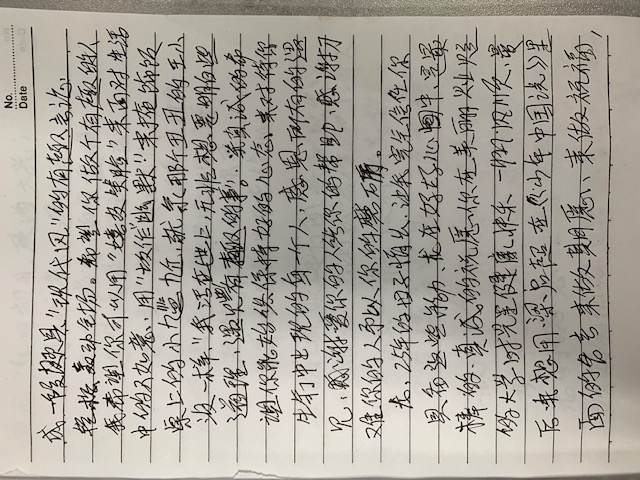 No.
Date
或一段颇具"现代风"的有趣言论,
轻松轰动全场。希望你做个有趣的人
我希望你可以用"嬉皮笑脸"来面对生活
中的不如意,用"故作幽默"来掩饰饭
桌上的小尴尬,就象那个丑丑的王小
波一样,"我活在世上,无非想要明白些
道理,遇见些有趣的事"。并真诚的希
望你能始终保持好的心态,来对待你
生命中出现的每一个人,感恩所有的遇
见,感谢爱你的人给你的帮助,感谢刁
难你的人予以你的磨石屑。
龙,25年的母子情长,让我完全信任你
具备这些能力,龙在好好心中,是最
棒的,真诚的祝愿你在美丽
的大学时光里健康快乐 一切顺,最
后我想用梁启超在《少年中国说》里
面的名言来做期愿、来做祝福,